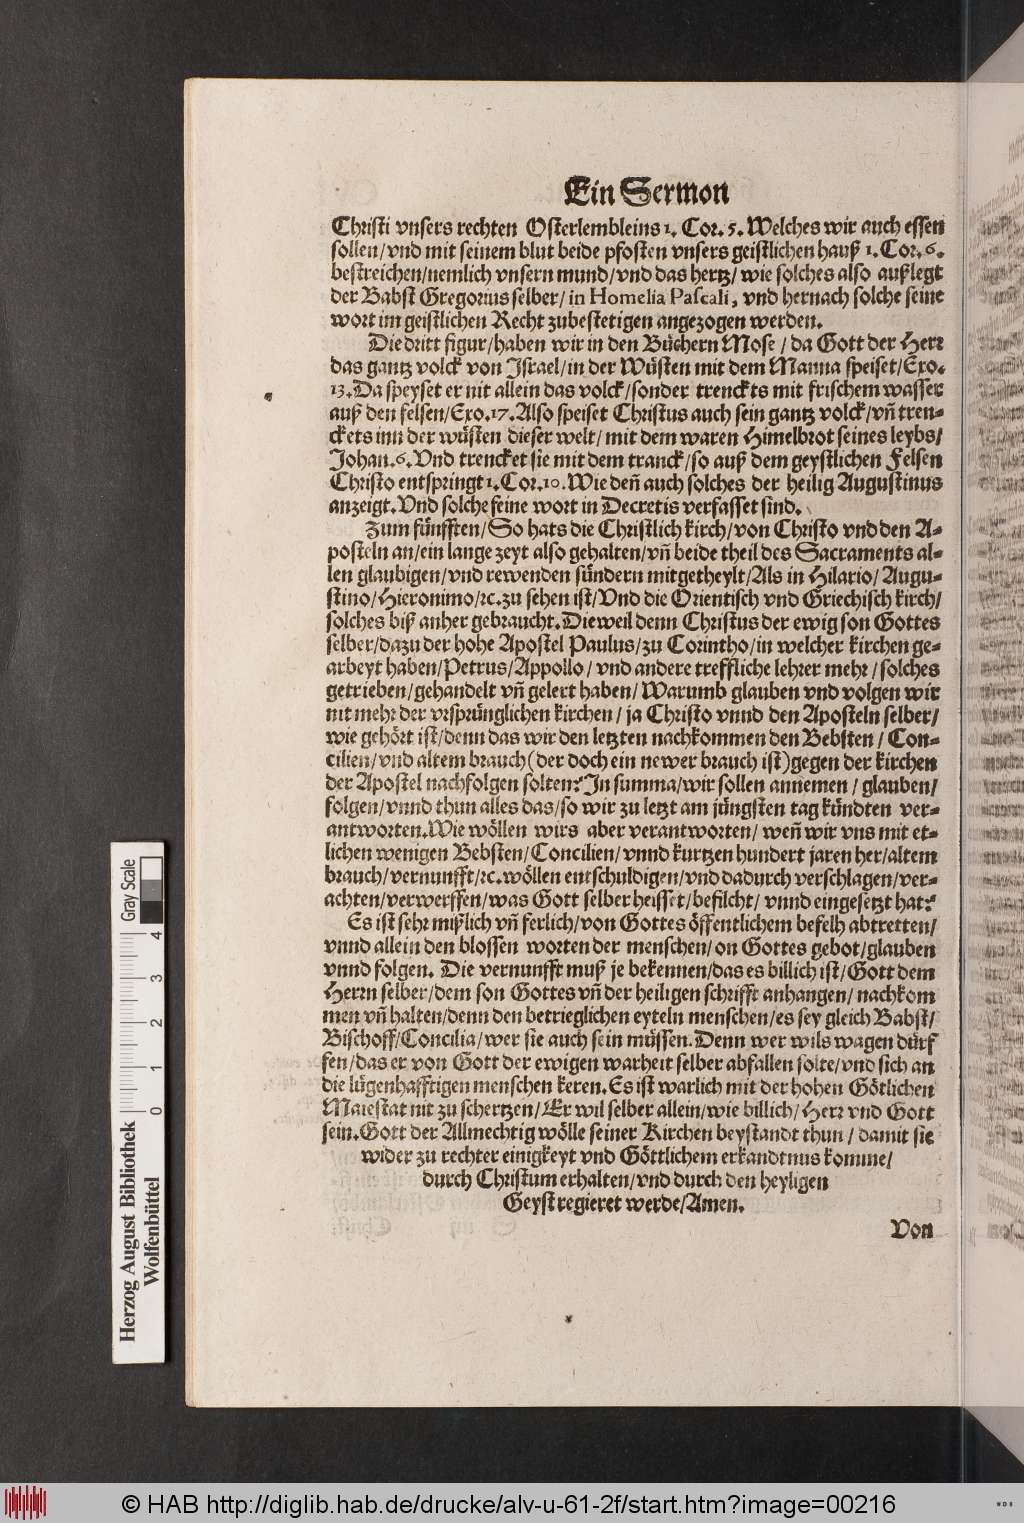 Ein Sermon
Christi vnsers rechten Osterlembleins 1. Cor. 5. Welches wir auch essen
sollen/vnd mit seinem blut beide pfosten vnsers geistlichen hauß 1. Cor. 6.
bestreichen/nemlich vnsern mund/vnd das hertz/ wie solches also außlegt
der Babst Gregorius selber/ in Homelia Pascali, vnd hernach solche seine
wort im geistlichen Recht zubestetigen angezogen werden.
Die dritt figur/haben wir in den Büchern Mose / da Gott der Herr
das gantz volck von Israel/in der Wüsten mit dem Manna speiset/Exo.
13. Da speyset er nit allein das volck/sonder trenckts mit frischem wasser
auß den felsen/Exo. 17. Also speiset Christus auch sein gantz volck/vñ tren-
ckets inn der wüsten dieser welt/ mit dem waren Himelbrot seines leybs/
Johan. 6. Vnd trencket sie mit dem tranck/so auß dem geystlichen Felsen
Christo entspringt 1. Cor. 10. Wie deñ auch solches der heilig Augustinus
anzeigt. Vnd solche seine wort in Decretis verfasset sind.
Zum fünfften/So hats die Christlich kirch/von Christo vnd den A-
posteln an/ein lange zeyt also gehalten/vñ beide theil des Sacraments al-
len glaubigen/vnd rewenden sündern mitgetheylt/Als in Hilario/ Augu-
stino/Hieronimo/ꝛc. zu sehen ist/Vnd die Orientisch vnd Griechisch kirch/
solches biß anher gebraucht. Dieweil denn Christus der ewig son Gottes
selber/dazu der hohe Apostel Paulus/zu Corintho/in welcher kirchen ge-
arbeyt haben/Petrus/Appollo/ vnd andere treffliche lehrer mehr/solches
getrieben/gehandelt vñ gelert haben/ Warumb glauben vnd volgen wir
nit mehr der vrsprünglichen kirchen/ ja Christo vnnd den Aposteln selber/
wie gehört ist/denn das wir den letzten nachkommen den Bebsten / Con-
cilien/vnd altem brauch (der doch ein newer brauch ist) gegen der kirchen
der Apostel nachfolgen solten? In summa/wir sollen annemen / glauben/
folgen/vnnd thun alles das/so wir zu letzt am jüngsten tag kündten ver-
antworten. Wie wöllen wirs aber verantworten/ weñ wir vns mit et-
lichen wenigen Bebsten/Concilien/vnnd kurtzen hundert jaren her/altem
brauch/vernunfft/ꝛc. wöllen entschuldigen/vnd dadurch verschlagen/ver-
achten/verwerffen/was Gott selber heisset/befilcht/ vnnd eingesetzt hat?
Es ist sehr mißlich vñ ferlich/von Gottes öffentlichem befelh abtretten/
vnnd allein den blossen worten der menschen/on Gottes gebot/glauben
vnnd folgen. Die vernunfft muß je bekennen/das es billich ist/Gott dem
Herrn selber/dem son Gottes vñ der heiligen schrifft anhangen/ nachkom
men vñ halten/denn den betrieglichen eyteln menschen/es sey gleich Babst/
Bischoff/Concilia/wer sie auch sein müssen. Denn wer wils wagen dürf
fen/das er von Gott der ewigen warheit selber abfallen solte/vnd sich an
die lügenhafftigen menschen keren. Es ist warlich mit der hohen Götlichen
Maiestat nit zu schertzen/Er wil selber allein/wie billich/ Herr vnd Gott
sein. Gott der Allmechtig wölle seiner Kirchen beystandt thun / damit sie
wider zu rechter einigkeyt vnd Göttlichem erkandtnus komme/
durch Christum erhalten/vnd durch den heyligen
Geyst regieret werde/Amen.
Von
Gray Scale
4
3
2
1
0
Herzog August Bibliothek
Wolfenbüttel
© HAB http://diglib.hab.de/drucke/alv-u-61-2f/start.htm?image=00216